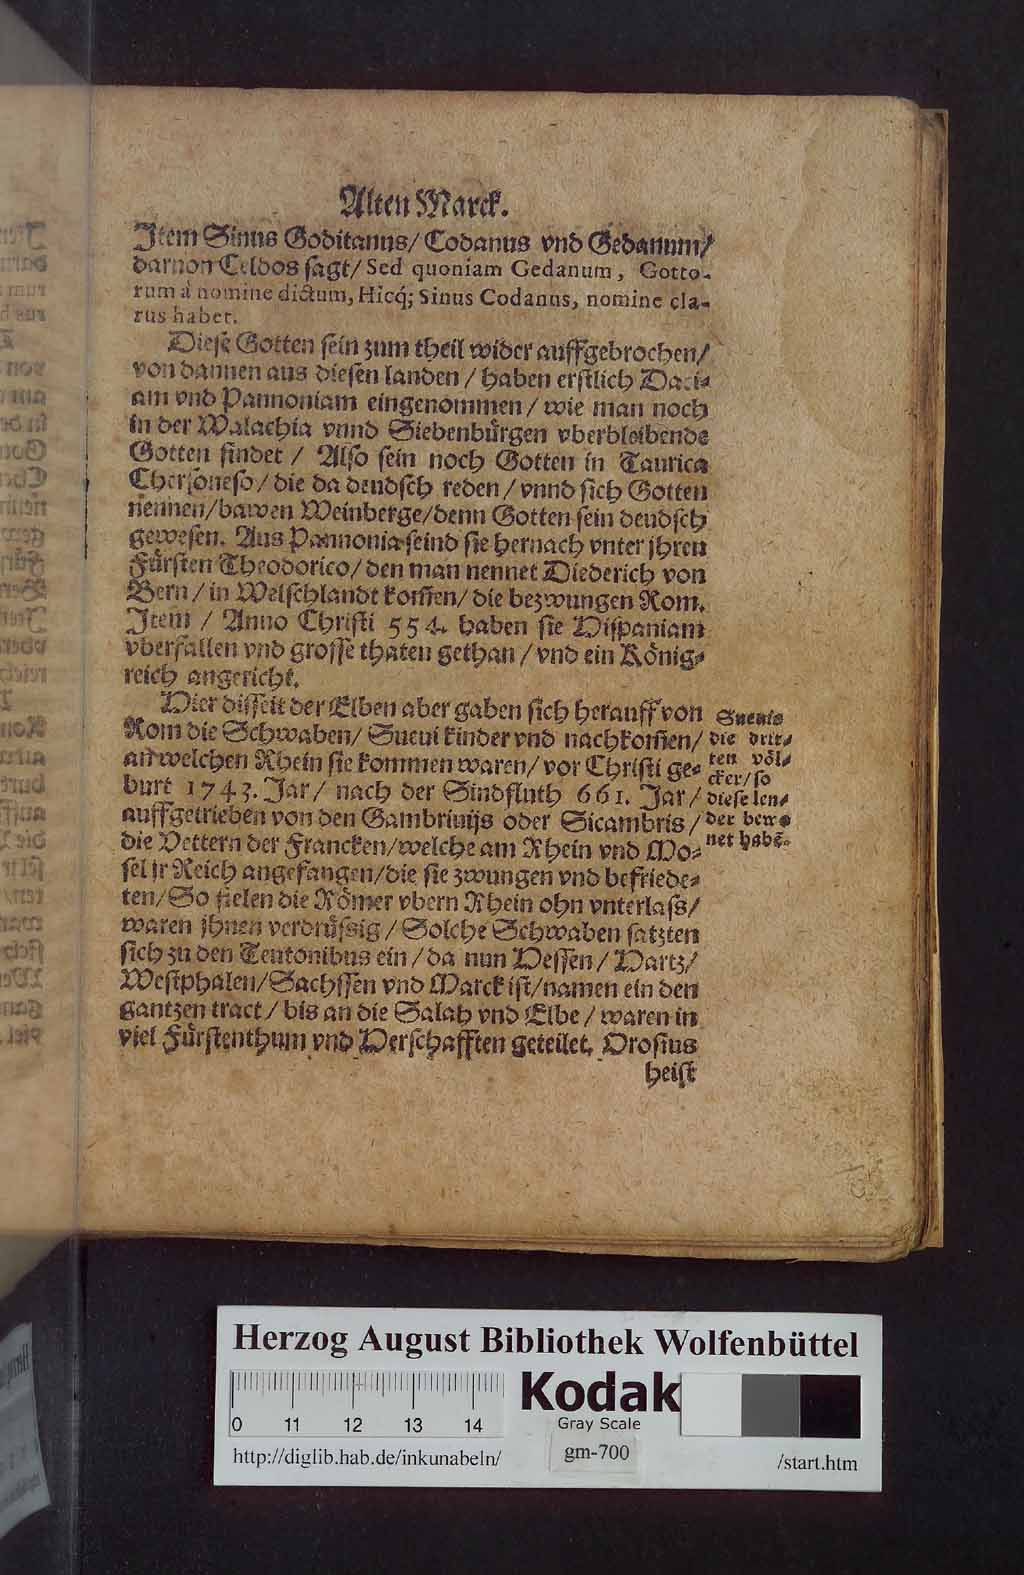 Alten Marck.
Item Sinus Goditanus/ Codanus vnd Gedanum/
daruon Celdos sagt/ Sed quoniam Gedanum, Gotto-
rum à nomine dictum, Hicq́; Sinus Codanus, nomine cla-
rus habet.
Diese Gotten sein zum theil wider auffgebrochen/
von dannen aus diesen landen / haben erstlich Daci-
am vnd Pannoniam eingenommen / wie man noch
in der Walachia vnnd Siebenbürgen vberbleibende
Gotten findet / Also sein noch Gotten in Taurica
Chersoneso / die da deudsch reden / vnnd sich Gotten
nennen/bawen Weinberge/denn Gotten sein deudsch
gewesen. Aus Pannonia seind sie hernach vnter jhren
Fürsten Theodorico/ den man nennet Diederich von
Bern / in Welschlandt kom̃en/ die bezwungen Rom.
Item / Anno Christi 554. haben sie Hispaniam
vberfallen vnd grosse thaten gethan / vnd ein König-
reich angericht.
Hier disseit der Elben aber gaben sich herauff von
Rom die Schwaben/ Sueui kinder vnd nachkom̃en/
an welchen Rhein sie kommen waren/ vor Christi ge-
burt 1743. Jar/ nach der Sindfluth 661. Jar/
auffgetrieben von den Gambriuijs oder Sicambris/
die Vettern der Francken/welche am Rhein vnd Mo-
sel jr Reich angefangen/die sie zwungen vnd befriede-
ten/ So fielen die Römer vbern Rhein ohn vnterlass/
waren jhnen verdrüssig / Solche Schwaben satzten
sich zu den Teutonibus ein / da nun Hessen/ Hartz/
Westphalen/Sachssen vnd Marck ist/namen ein den
gantzen tract / bis an die Salah vnd Elbe / waren in
viel Fürstenthum vnd Herschafften geteilet, Orosius
heist
Sueuis
die drit-
ten völ-
cker/ so
diese len-
der bewo
net habẽ.
Herzog August Bibliothek Wolfenbüttel
0 11 12 13 14
Kodak
Gray Scale
http://diglib.hab.de/inkunabeln/
gm-700
/start.htm